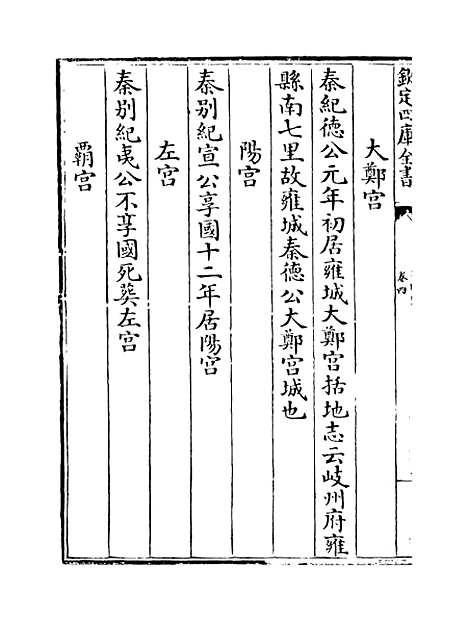 欽定四庫全書
卷四
大鄭宫
秦紀德公元年初居雍城大鄭宫括地志云岐州府雍
縣南七里故雍城秦德公大鄭宫城也
陽宫
秦别紀宣公享國十二年居陽宫
左宫
秦别紀夷公不享國死葬左宫
覇宫